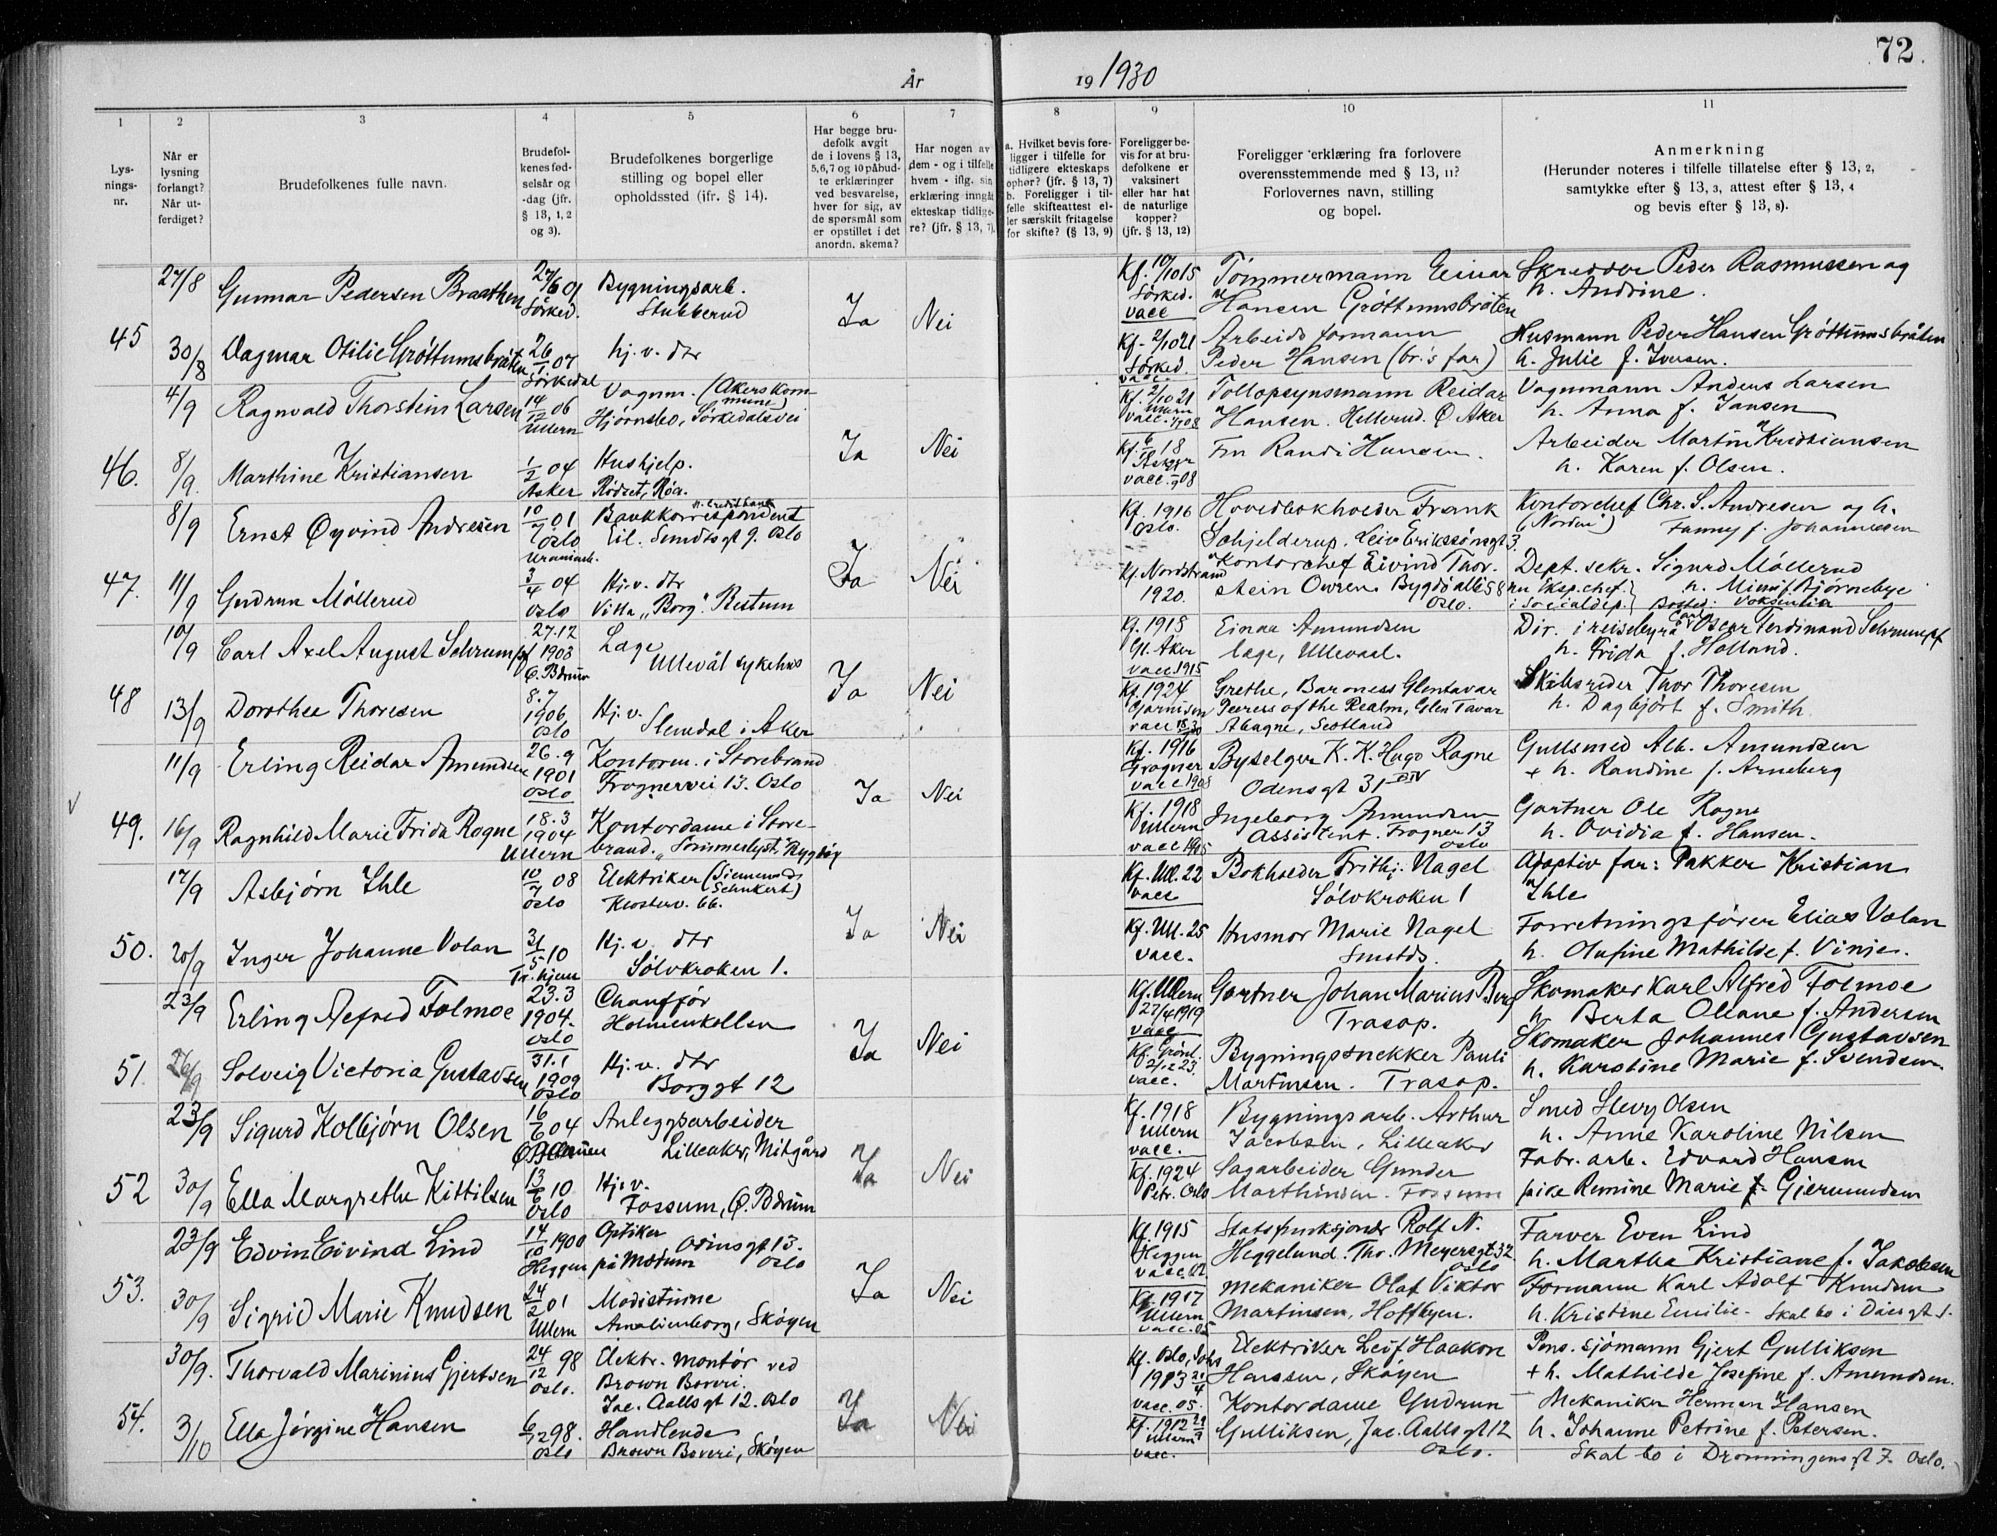 72.
År 19 1930
1 2 3 4 5 6 7 8 9 10 11
Lys-
nings-
nr.
Når er
lysning
forlangt?
Når ut-
ferdiget?
Brudefolkenes fulle navn.
Brudefol-
kenes fød-
selsår og
-dag (jfr.
§ 13, 1, 2
og 3).
Brudefolkenes borgerlige
stilling og bopel eller
opholdssted (ifr. § 14).
Har begge bru-
defolk avgit
de i lovens § 13,
5,6,7 og 10 påbud-
te erklæringer
ved besvarelse,
hver for sig, av
de spørsmål som
er opstillet i det
anordn. skema?
Har nogen av
dem - og i tilfelle
hvem - iflg. sin
erklæring inngåt
ekteskap tidlige-
re? (jfr. § 13, 7).
a. Hvilket bevis fore-
ligger i tilfelle for
tidligere ekteskaps
ophør? (jfr. § 13, 7)
b. Foreligger i til-
felle skifteattest el-
ler særskilt fritagelse
for skifte? (§ 13, 9)
Foreligger be-
vis for at bru-
defolkene er
vaksinert
eller har hat
de naturlige
kopper?
(jfr. § 13, 12)
Foreligger erklæring fra forlovere
overensstemmende med § 13, 11?
Forlovernes navn, stilling
og bopel.
Anmerkning
(Herunder noteres i tilfelle tillatelse efter § 13, 2,
samtykke efter § 13, 3, attest efter § 13, 4
og bevis efter § 13, 8).
45
27/8 Gunnar Pedersen Braathen 27/6 01 Sörked. Bygningsarb. Stubberud Ja Nei Kf. 10/10 15 Sörked. vacc Tömmermann Einar Hansen Gröttumsbråten Skredder Peder Rasmussen og h. Andrine.
30/8 Dagmar Otilie Gröttumsbråten 26/1 07 Sörkedal hj. v. dtr Kf. 2/10 21 Sörked vacc. Arbeidsformann Peder Hansen (br.'s far) Husmann Peder Hansen Gröttumsbråten h. Julie f. Iversen.
46.
4/9 Ragnvald Thorstein Larsen 14/12 06 Ullern Vognm. (Akers kommune) Hjørnsbo, Sörkedalsvei Ja Nei Kf. 2/10 21 Ullern vacc. Tollopsynsmann Reidar Hansen. Hellerud. Ø. Aker Vognmann Anders Larsen h. Anna f. Jansen
8/9. Marthine Kristiansen 1/2 04 Asker Hushjelp. Rödset, Röa. Kf. 18 Asker vacc. 08 Fru Randi Hansen. Arbeider Martin Kristiansen h. Karen f. Olsen.
47.
8/9 Ernst Øyvind Andresen 10/7 01 Oslo Uranienb. Bankkorrespondent N. Creditbank Eil. Sundtsgt 9. Oslo Ja Nei Kf. 1916 Oslo. Hovedbokholder Frank Schjelderup. Leiv Erikssönsgt 3. Kontorchef Chr. S. Andresen og h. (Norden) Fanny f. Johannessen
11/9 Gudrun Möllerud 3/4 04 Oslo Hj. v. dtr Villa "Borg". Bestum Kf. Nordstrand 1920. Kontorchef Eivind Thorstein Owren. Bygdö allé 58 Oslo. Dept. sekr. Sigurd Möllerud nu Eksp.chef i Socialdep. h. Mimi f. Bjørnebye Bosted: Voksenlia
48
10/9 Carl Axel August Schrumpf 27.12 1903 Ö. Bærum Læge Ullevål sykehus Ja Nei Kf. 1918 Gl. Aker vacc. 1915 Einar Amundsen læge, Ullevaal. Dir. i reisebyrå Carl Oscar Ferdinand Schrumpf h. Frida f. Holland.
13/9 Dorothea Thoresen 8.7 1906 Oslo Hj. v. Slemdal i Aker Kf. 1924 vacc Grethe, Baroness Glentavar Peeress of the Realm, Glen Tavar Abayne, Scotland Skibsreder Thor Thoresen h. Dagbjört f. Smith
49.
11/9 Erling Reidar Amundsen 26.9 1901 Oslo Kontorm. i Storebrand Frognervei 13. Oslo Ja Nei Kf. 1916 Frogner vacc 1908 Byselger K. K. Hugo Ragne Odensgt 31 IV Gullsmed Alb. Amundsen + h. Randine f. Arneberg
16/9 Ragnhild Marie Frida Rogne 18.3 1904 Ullern Kontordame i Storebrand. "Sommerlyst", Bygdöy Kf. 1918 Ullern vacc 1905 Ingeborg Amundsen Assistent. Frognerv 13 Oslo Gartner Ole Rogne h. Ovidia f. Hansen.
50.
17/9 Asbjørn Ihle 10/7 08 Oslo Elektriker (Siemens Schukert) Klosterv. 66. Ja Nei Kf. Ull. 22 vacc Bokholder Frithj. Nagel Sölvkroken 1 Adoptiv far: Pakker Kristian Ihle
20/9 Inger Johanne Volan 31/5 10 Tr.hjem Hj. v. dtr Sölvkroken 1. Kf. Ull. 25 vacc. Husmor Marie Nagel Smstds. Forretningsförer Elias Volan h. Olufine Mathilde f. Vinje.
51.
23/9 Erling Alfred Folmoe 23.3 1904. Oslo Chauffør Holmenkollen Ja Nei Kf. Ullern 27/4 1919 vacc Gartner Johan Marius Berg Trasop. Skomaker Karl Alfred Folmoe h. Berta Ollane f. Andersen
26/9 Solveig Victoria Gustavsen 31.1 1909 Oslo Hj. v. dtr Borggt 12 Kf. Grønl. 23. vacc. Bygningssnekker Pauli Martinsen. Trasop. Skomaker Johannes Gustavsen h. Karoline Marie f. Svendsen
52
23/9 Sigurd Kolbjørn Olsen 16/6 04 Anleggsarbeider Lilleaker, Nitgård Ja Nei Kf. 1918 Ullern vacc. Bygningsarb. Arthur Jacobsen, Lilleaker Smed Olsen h. Anne Karoline Nilsen
30/9 Ella Margrethe Kittilsen 13/6 10 Oslo Hj. v. Fossum, Ö. Bærum Kf. 1924 Petr. Oslo Sagarbeider Gunder Marthinsen. Fossum Fabr. arb. Edvard Hansen pike Remine Marie Gjermundsen
53.
23/9 Edvin Eivind Lind 14/10 1900 Heggen på Modum Optiker Odinsgt 13. Oslo Ja Nei Kf. 1915 Heggen vacc. 02 Statsfunksjonær Rolf N. Heggelund. Tho. Meyersgt 32 Oslo Farver Even Lind h. Martha Kristiane f. Jakobsen
30/9 Sigrid Marie Knudsen 24/2 01 Ullern Modistinne Amalienborg, Sköyen Kf. 1917 Ullern vacc. 05 Mekaniker Olaf Viktor Martinsen, Hoffbyen. Formann Karl Adolf Knudsen h. Kristine Emilie. Skal bo i
54.
30/9. Thorvald Marinius Gjertsen 24/12 98 Oslo. Elektr. montör ved Brown Boveri. Jac. Aallsgt 12. Oslo Ja Nei Kf. Oslo, Johs 1913 vacc. 05. Elektriker Leif Haakon Hanssen, Sköyen Pens. sjömann Gjert Gulliksen + h. Mathilde Josefine f. Amundsen.
3/10 Ella Jørgine Hansen 6/12 98. Oslo Handlende Brown Boveri, Sköyen Kf. 1912 Ullern vacc. Kontordame Gudrun Gulliksen, Jac. Aallsgt 12 Oslo. Mekaniker Herman Hansen h. Johanne Petrine f. Petersen. Skal bo i Dronningensgt 7. Oslo.